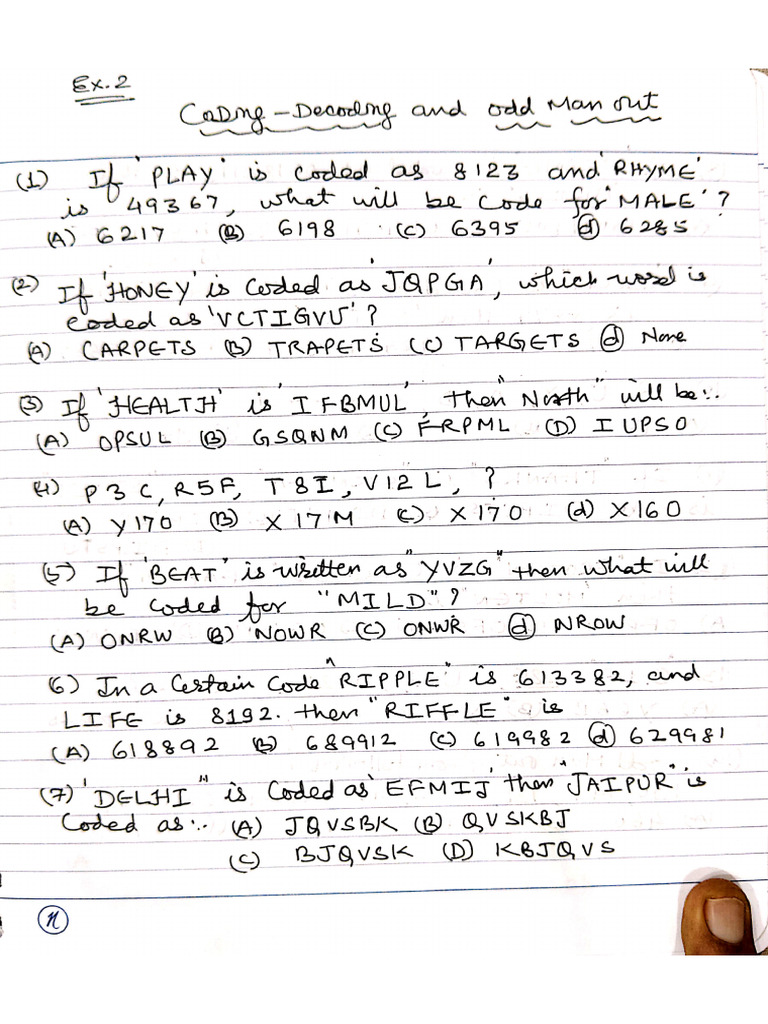 Ex.2
Coding-Decoding and odd Man out
(1) If 'PLAY' is coded as 8123 and 'RHYME'
is 49367, what will be Code for 'MALE' ?
(A) 6217 (B) 6198 (C) 6395 (d) 6285
(2) If 'HONEY' is coded as 'JQPGA', which word is
coded as 'VCTIGVU' ?
(A) CARPETS (B) TRAPETS (C) TARGETS (d) None
(3) If 'HEALTH' is 'IFBMUL', then "North" will be:.
(A) OPSUL (B) GSQNM (C) FRPML (D) IUPSO
(4) P3C, R5F, T8I, V12L, ?
(A) Y17O (B) X17M (C) X17O (d) X16O
(5) If 'BEAT' is written as "YVZG" then what will
be coded for "MILD" ?
(A) ONRW (B) NOWR (C) ONWR (d) NROW
(6) In a Certain Code "RIPPLE" is 613382, and
LIFE is 8192. then "RIFFLE" is
(A) 618892 (B) 689912 (C) 619982 (d) 629981
(7) 'DELHI" is Coded as 'EFMIJ' then "JAIPUR" is
Coded as:. (A) JQVSBK (B) QVSKBJ
(C) BJQVSK (D) KBJQVS
n